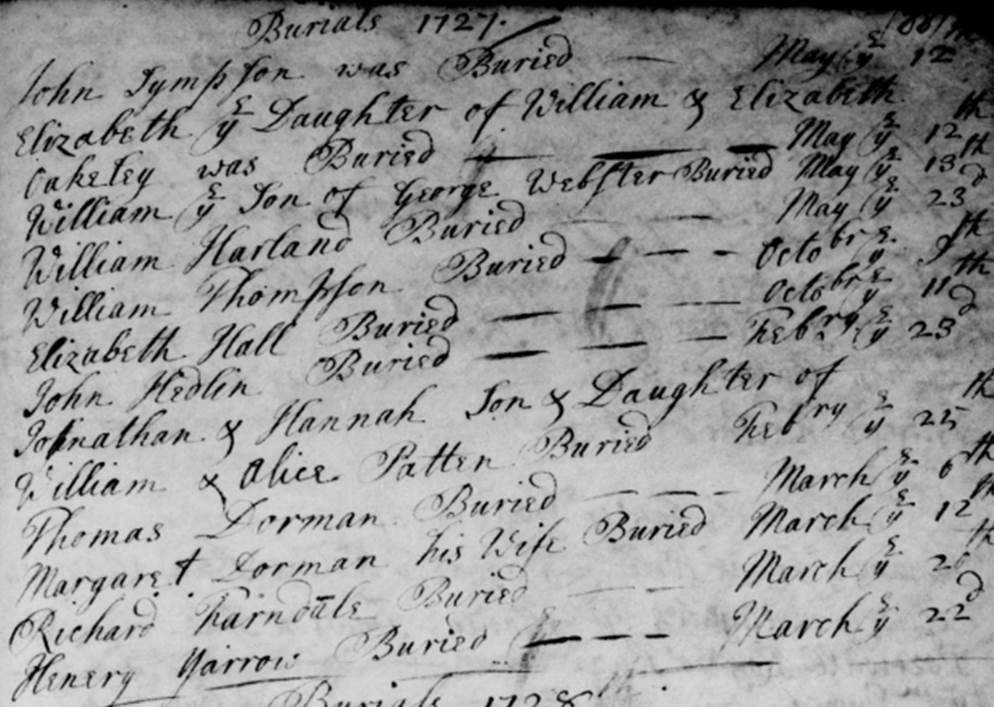 Burials 1727.
John Sympson was Buried May ye 12
Elizabeth ye Daughter of William & Elizabeth
Oakeley was Buried May ye 12th
William ye Son of George Webster Buried May ye 13th
William Harland Buried May ye 23d
William Thompson Buried Octobr ye 5th
Elizabeth Hall Buried Octobr ye 11th
John Hedlin Buried Febry ye 23d
Johnathan & Hannah Son & Daughter of
William & Alice Patten Buried Febry ye 25th
Thomas Dorman Buried March ye 6th
Margaret Dorman his Wife Buried March ye 12th
Richard Farndale Buried March ye 20th
Henery Yarrow Buried March ye 22d
Burials 1728